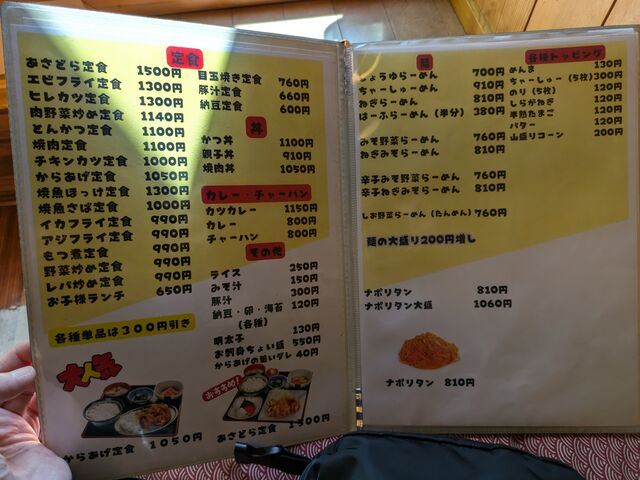 定食
あさどら定食 1500円
エビフライ定食 1300円
ヒレカツ定食 1300円
肉野菜炒め定食 1140円
とんかつ定食 1100円
焼肉定食 1100円
チキンカツ定食 1000円
からあげ定食 1050円
焼魚ほっけ定食 1300円
焼魚さば定食 1000円
イカフライ定食 990円
アジフライ定食 990円
もつ煮定食 990円
野菜炒め定食 990円
レバ炒め定食 990円
お子様ランチ 650円
各種単品は300円引き
大人気
からあげ定食 1050円
目玉焼き定食 760円
豚汁定食 660円
納豆定食 600円
丼
かつ丼 1100円
親子丼 910円
焼肉丼 1050円
カレー・チャーハン
カツカレー 1150円
カレー 800円
チャーハン 800円
その他
ライス 250円
みそ汁 150円
豚汁 300円
納豆・卵・海苔 120円
(各種)
明太子 130円
お刺身ちょい盛 550円
からあげの旨いダレ 40円
おすすめ!
あさどら定食 1500円
麺
しょうゆらーめん 700円
ちゃーしゅーめん 910円
ねぎらーめん 810円
はーふらーめん (半分) 380円
みそ野菜らーめん 760円
ねぎみそらーめん 810円
辛子みそ野菜らーめん 760円
辛子ねぎみそらーめん 810円
しお野菜らーめん (たんめん) 760円
麺の大盛り200円増し
ナポリタン 810円
ナポリタン大盛 1060円
ナポリタン 810円
各種トッピング
めんま 130円
ちゃーしゅー (5枚) 300円
のり (5枚) 120円
しらがねぎ 120円
半熟たまご 120円
バター 120円
山盛りコーン 200円